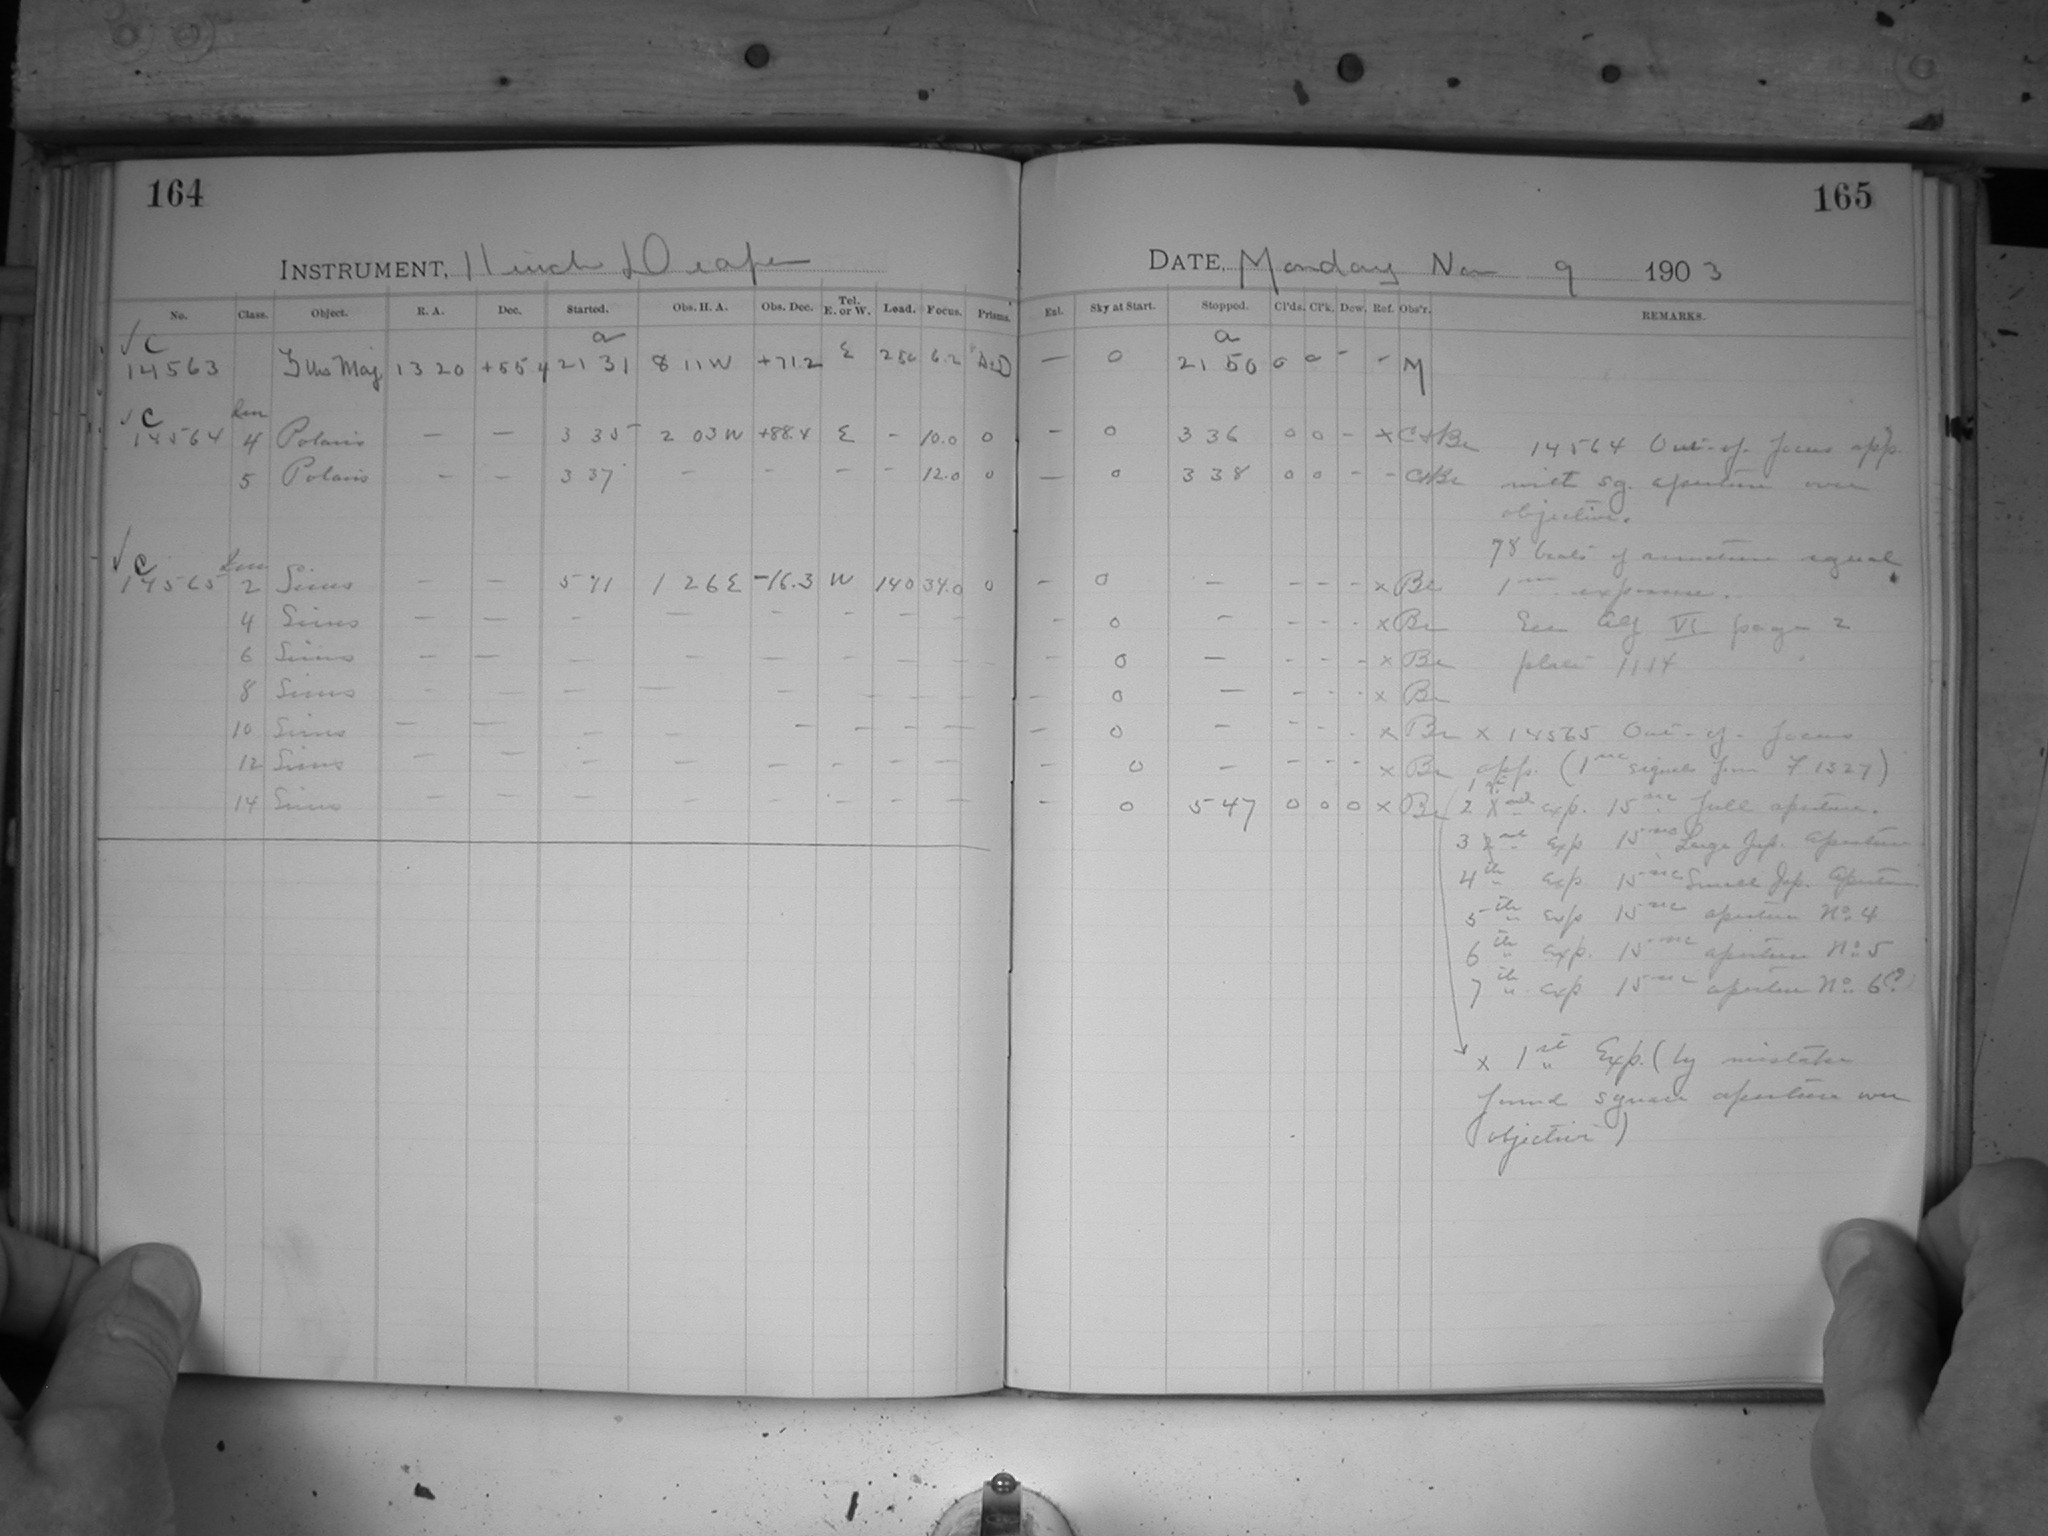 164
165
INSTRUMENT, 11 inch Draper
DATE, Monday Nov 9 1903
No. Class. Object. R. A. Dec. Started. Obs. H. A. Obs. Dec. Tel. E. or W. Load. Focus. Prisms. Ent. Sky at Start. Stopped. Cl'ds. Cl'k. Dew. Ref. Obs'r. REMARKS.
√ C a a
14563 ζ Urs Maj 13 20 +55 4 21 31 8 11 W +71.2 E 250 6.2 — 0 21 50 0 0 - - M
√ C
14564 4 Polaris — — 3 35 2 03 W +88.4 E - 10.0 0 - 0 3 36 0 0 - x C+Be 14564 Out-of-focus app.
5 Polaris - - 3 37 - - - - 12.0 0 — 0 3 38 0 0 - - C+Be with sq. aperture over
objective.
78 beats of armature equal
√ C
14565 2 Sirius - - 5 11 1 26 E -16.3 W 140 34.0 0 - 0 - - - - x Be 1 sec. exposure.
4 Sirius — — - — - - - - - - 0 - - - - x Be See VI page 2
6 Sirius — — — — — - - - - - 0 — - - - x Be plate 1114
8 Sirius - - - — - - - - - - 0 — - - - x Be
10 Sirius — — - - - - - - - 0 - - - - x Be x 14565 Out-of-focus
12 Sirius - - - - - - - - - 0 - - - - x Be app. (1 sec signals from 71327)
14 Sirius - - - - - - - - - 0 5 47 0 0 0 x Be 2 nd exp. 15 sec full aperture.
3 exp 15 sec Large Jap. Aperture
4th exp 15 sec Small Jap. Aperture
5th exp 15 sec aperture No. 4
6th exp. 15 sec aperture No. 5
7th exp 15 sec aperture No. 6(?)
x 1st Exp. (by mistake
found square aperture over
objective)